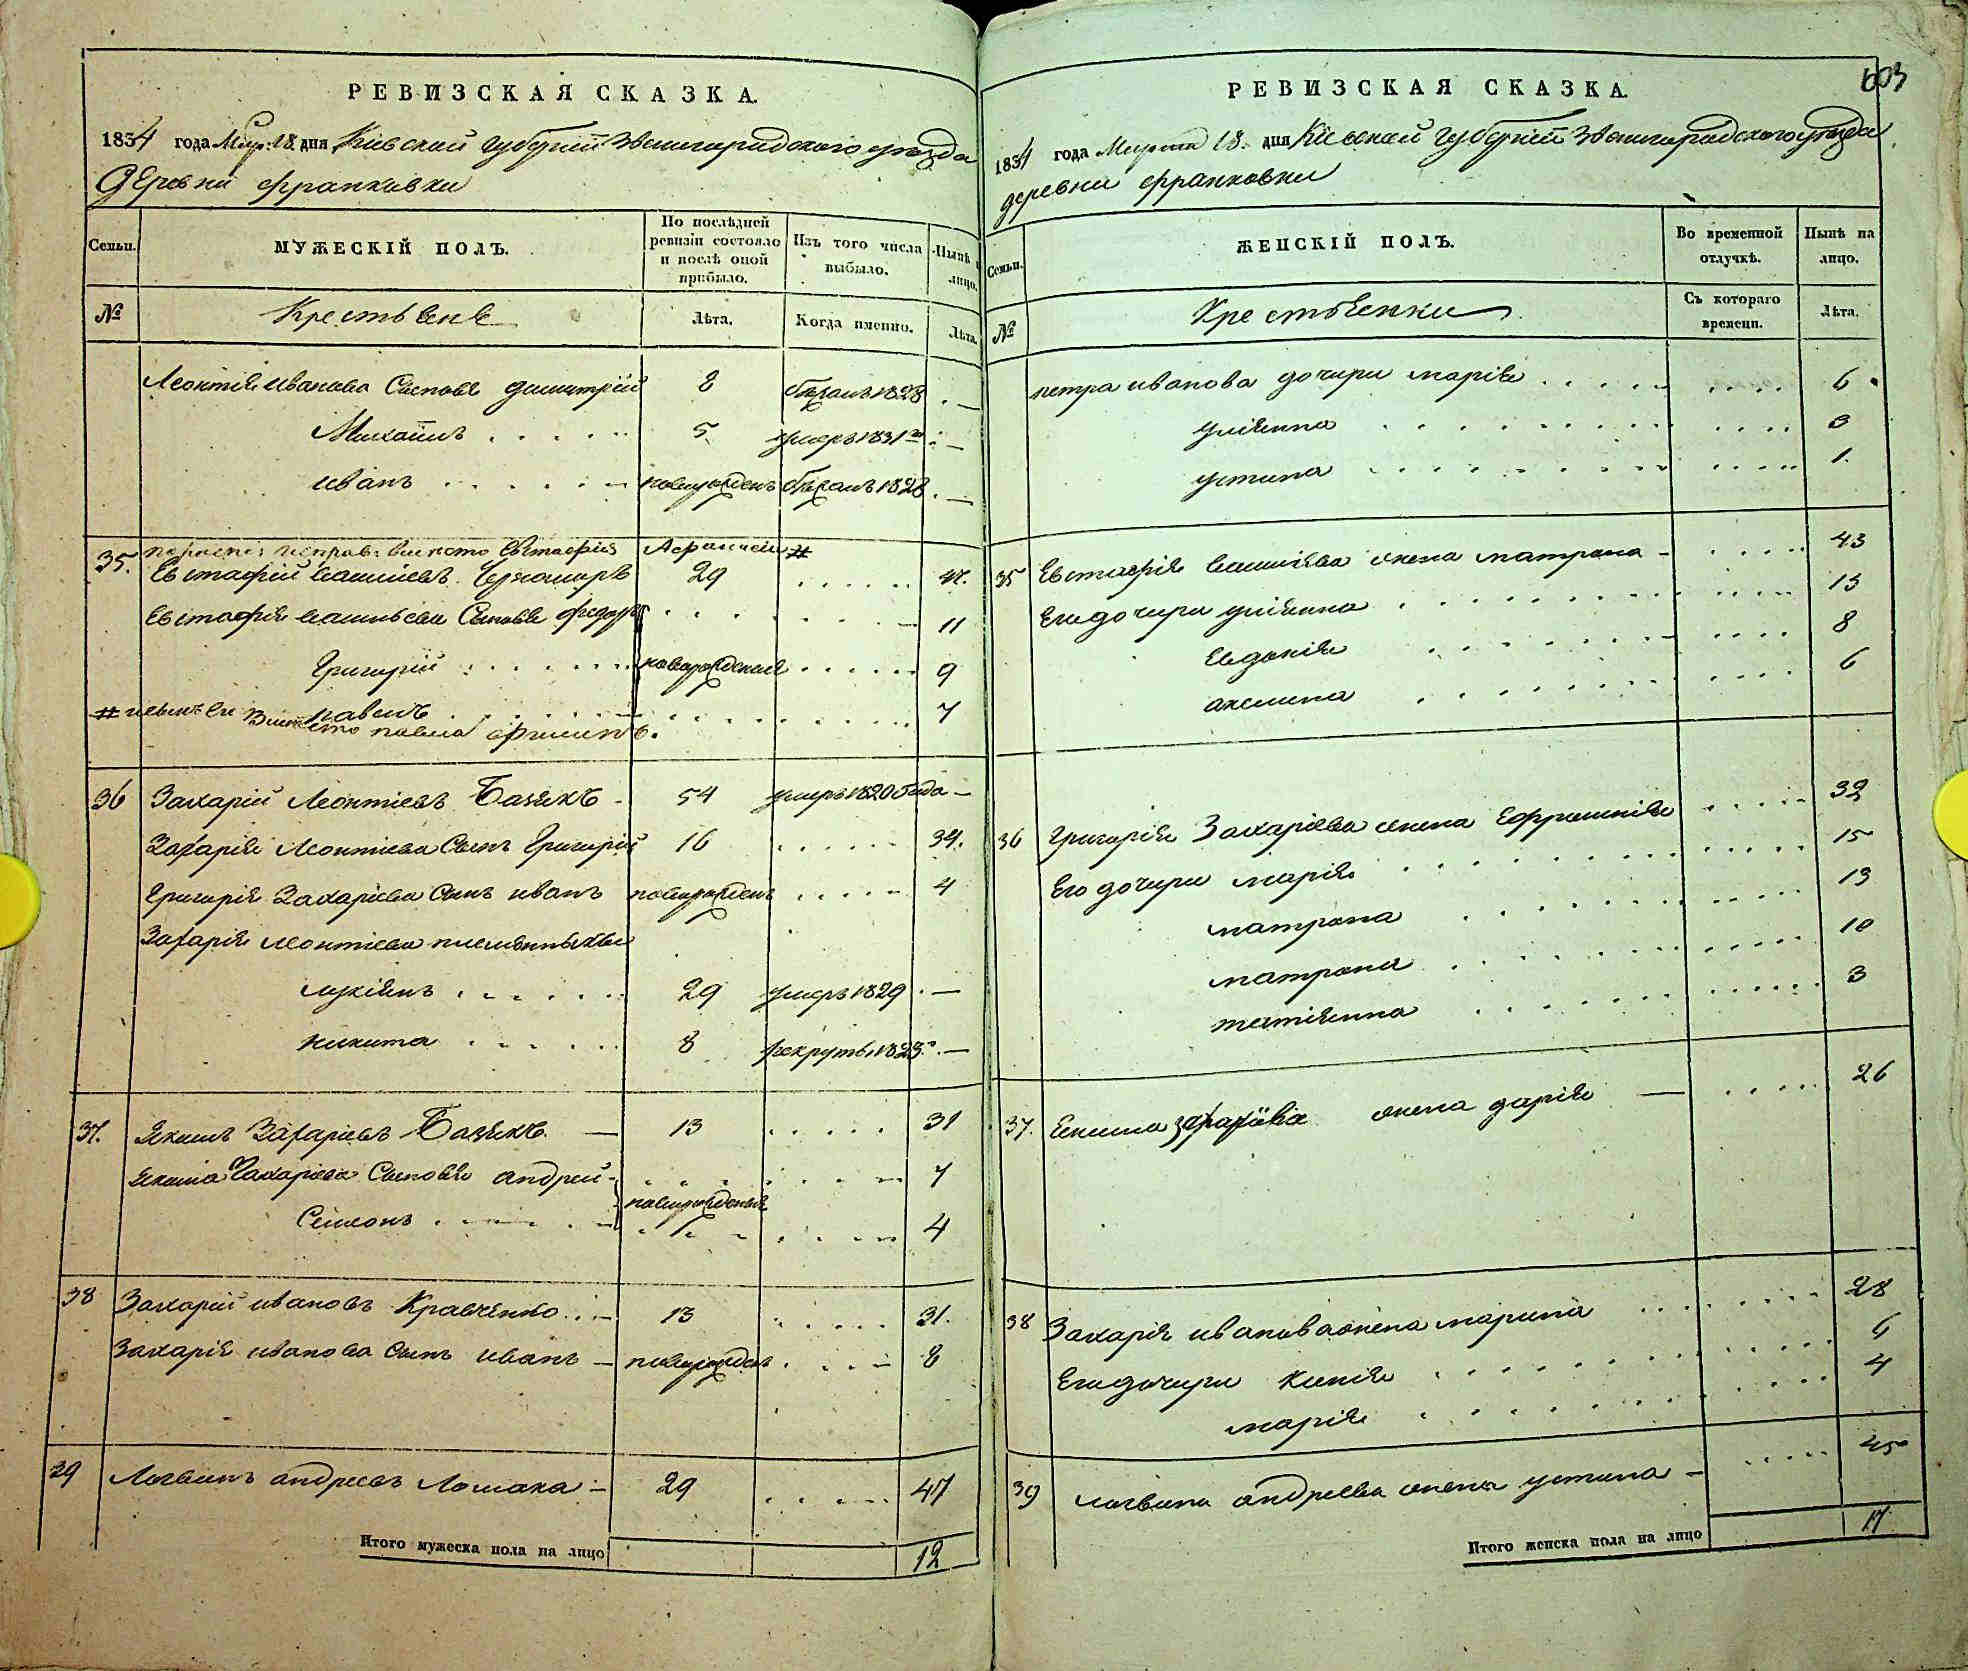 РЕВИЗСКАЯ СКАЗКА.
1834 года Мар: 18. дня Кіевской губерніи Звенигородского уезда
Деревни Франковки
Семьи.
МУЖЕСКІЙ ПОЛЪ.
По послѣдней ревизіи состояло и послѣ оной прибыло.
Изъ того числа выбыло.
Нынѣ на лицо.
№
Крестьяне
Лѣта.
Когда именно.
Лѣта.
Леонтія иванова Сыновья димитрій 8 1828
Михаилъ 5 умеръ 1831
иванъ новорожденъ 1828
вместо Евстафія Афанасій #
35. Евстафій 29 47.
Евстафія Сыновья федоръ 11
Григорій новорожденныя 9
павелъ 7
# вместо павла филипъ.
36 Захарій Леонтіевъ Базѣкъ 54 умеръ 1820 года
Захарія Леонтіева Сынъ Григорій 16 34.
Григорія Захаріева Сынъ иванъ новорожденъ 4
Захарія леонтіева племянники
лукіянъ 29 умеръ 1829
никита 8 рекрутъ 1828
37. Якимъ Захаріевъ Базѣкъ. 13 31
Якима Захаріева Сыновья андрей 7
новорожденныя
Семіонъ 4
38 Захарій ивановъ Кравченко 13 31.
Захарія иванова Сынъ иванъ новорожденъ 8
39 Логвинъ андреевъ Лошака 29 47
Итого мужеска пола на лицо 12
603
РЕВИЗСКАЯ СКАЗКА.
1834 года Марта 18. дня Кіевской губерніи Звенигородского уезда
деревни Франковки
Семьи.
ЖЕНСКІЙ ПОЛЪ.
Во временной отлучкѣ.
Нынѣ на лицо.
№
Крестьянки
Съ котораго времени.
Лѣта.
петра иванова дочери марія 6
уліянна 3
устина 1.
35 Евстафія жена матрона 43
Его дочери уліянна 13
Евдокія 8
аксинна 6
36 Григорія Захаріева жена Ефросинія 32
Его дочери марія 15
матрона 13
матрона 10
татіянна 3
37. Екима захаріева жена дарія 26
38 Захарія иванова жена марина 28
Его дочери 6
марія 4
39 логвина андреева жена устина 45
Итого женска пола на лицо 17